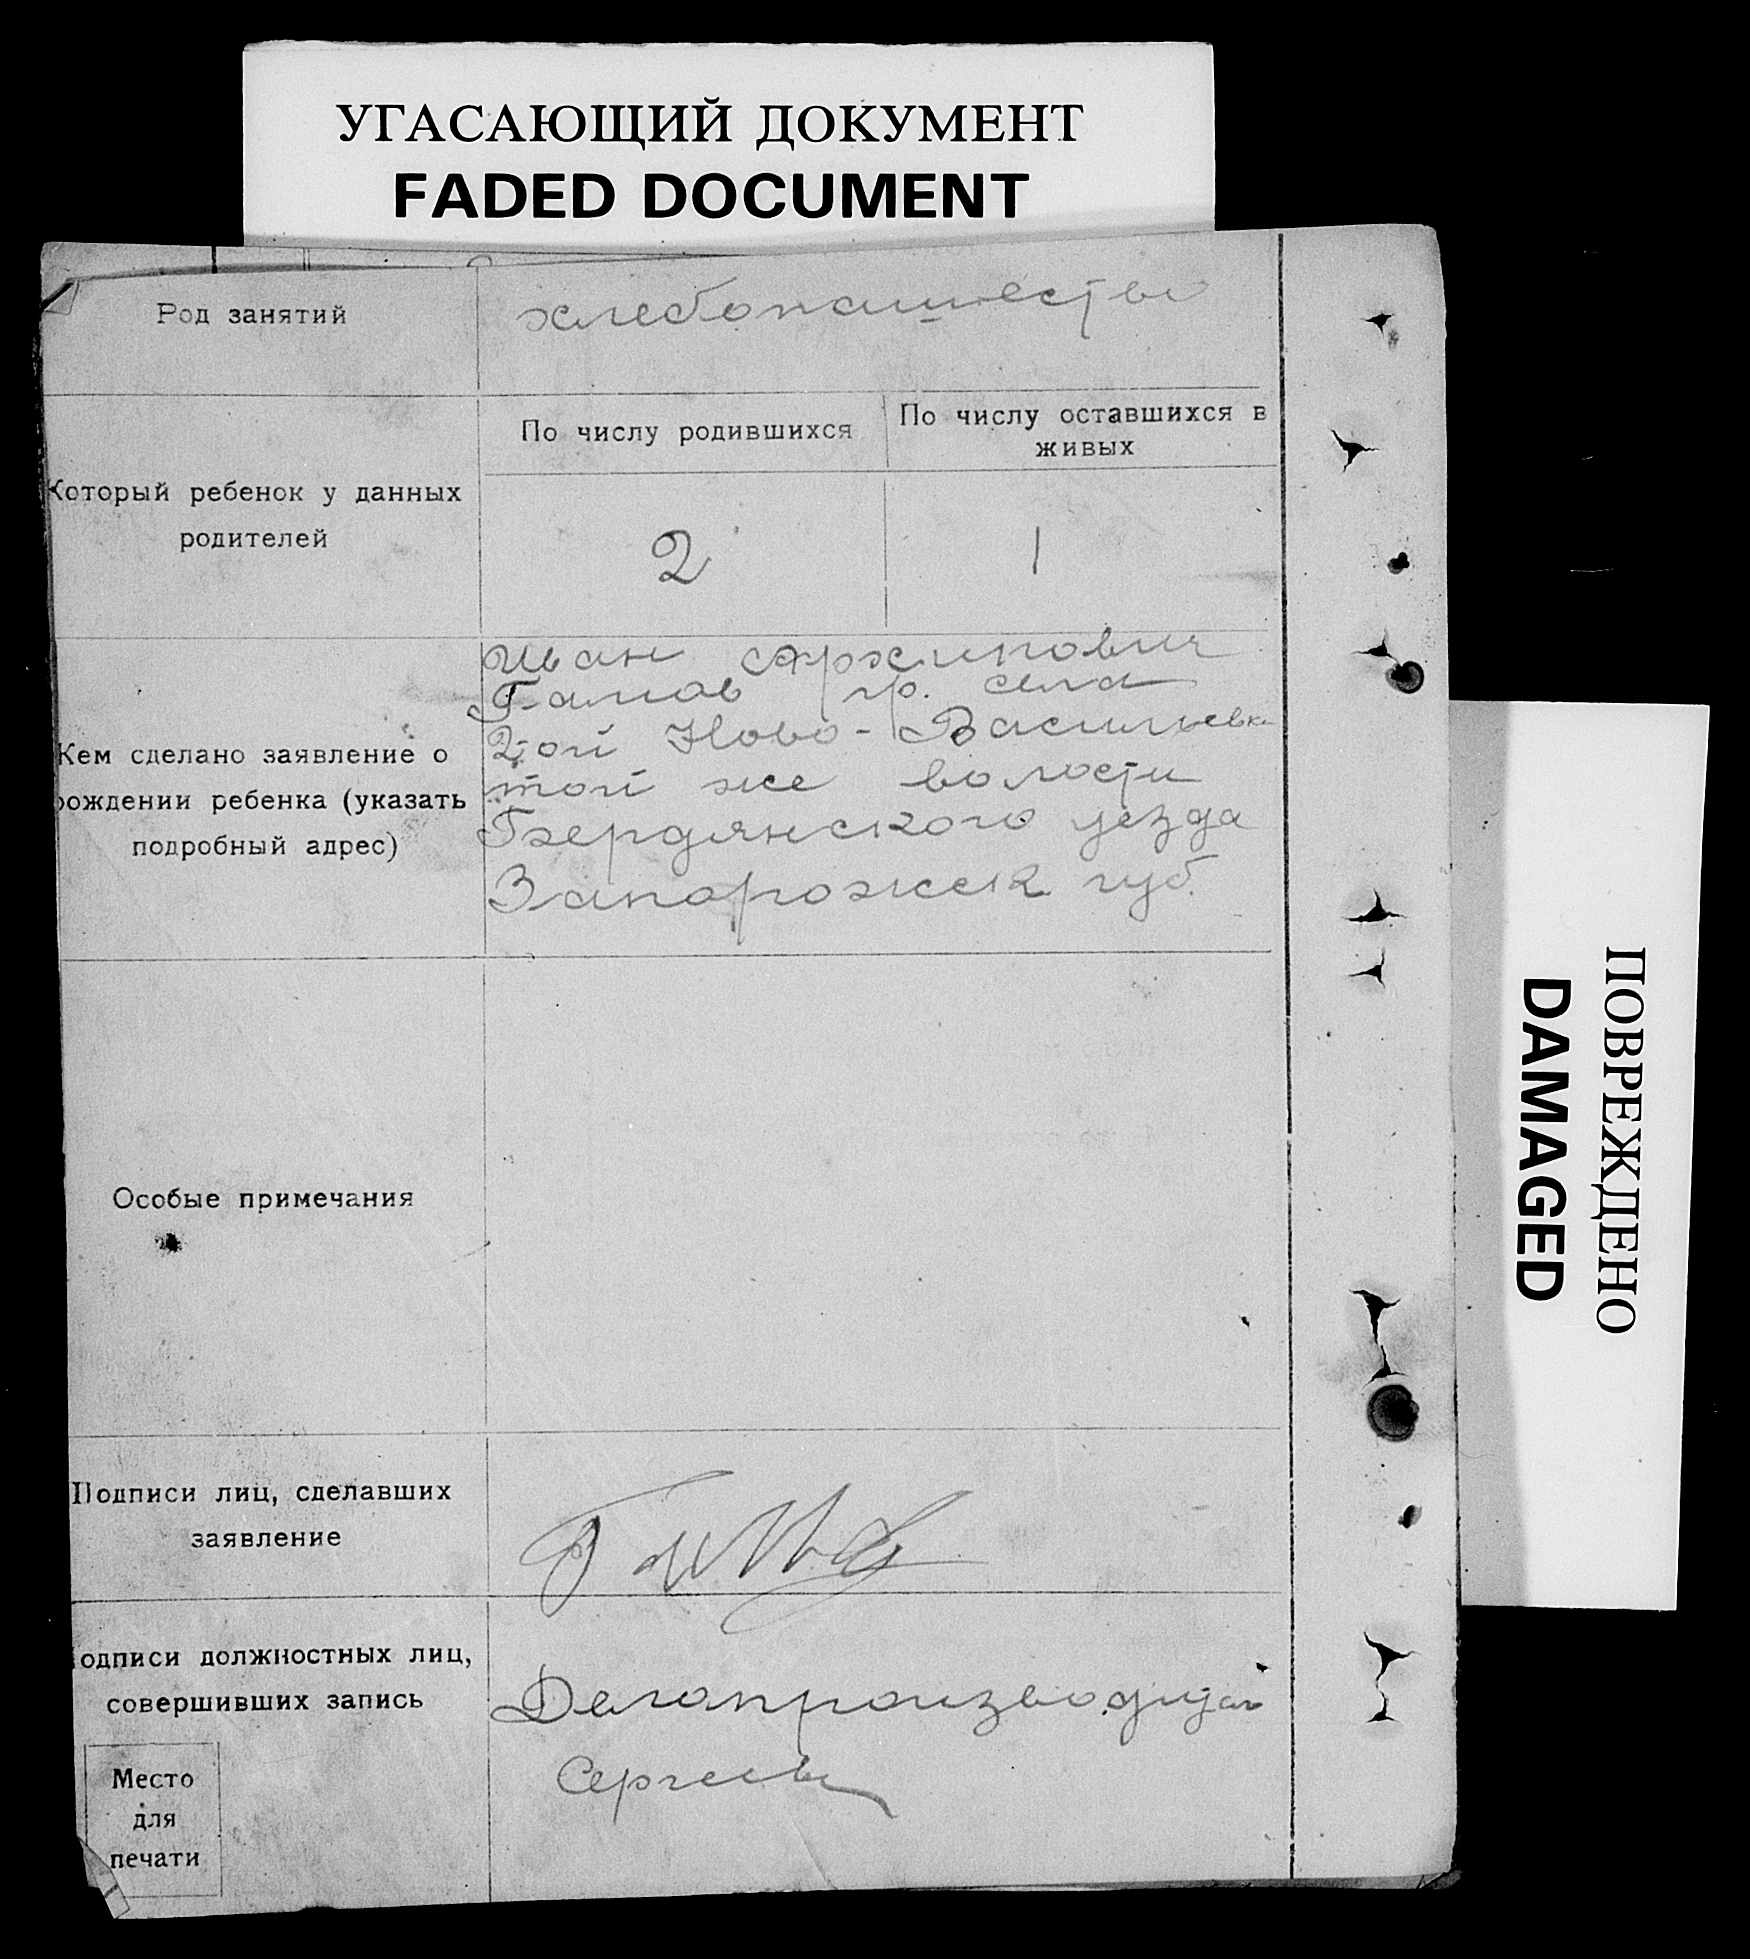 УГАСАЮЩИЙ ДОКУМЕНТ
FADED DOCUMENT
Род занятий
хлебопашество
Который ребенок у данных
родителей
По числу родившихся
По числу оставшихся в
живых
2
1
Кем сделано заявление о
рождении ребенка (указать
подробный адрес)
Иван Архипович
гр. села
2-ой Ново-Васильевки
той же волости
Бердянского уезда
Запорожск губ.
Особые примечания
Подписи лиц, сделавших
заявление
одписи должностных лиц,
совершивших запись
Делопроизводитель
Сергеев
Место
для
печати
ПОВРЕЖДЕНО
DAMAGED